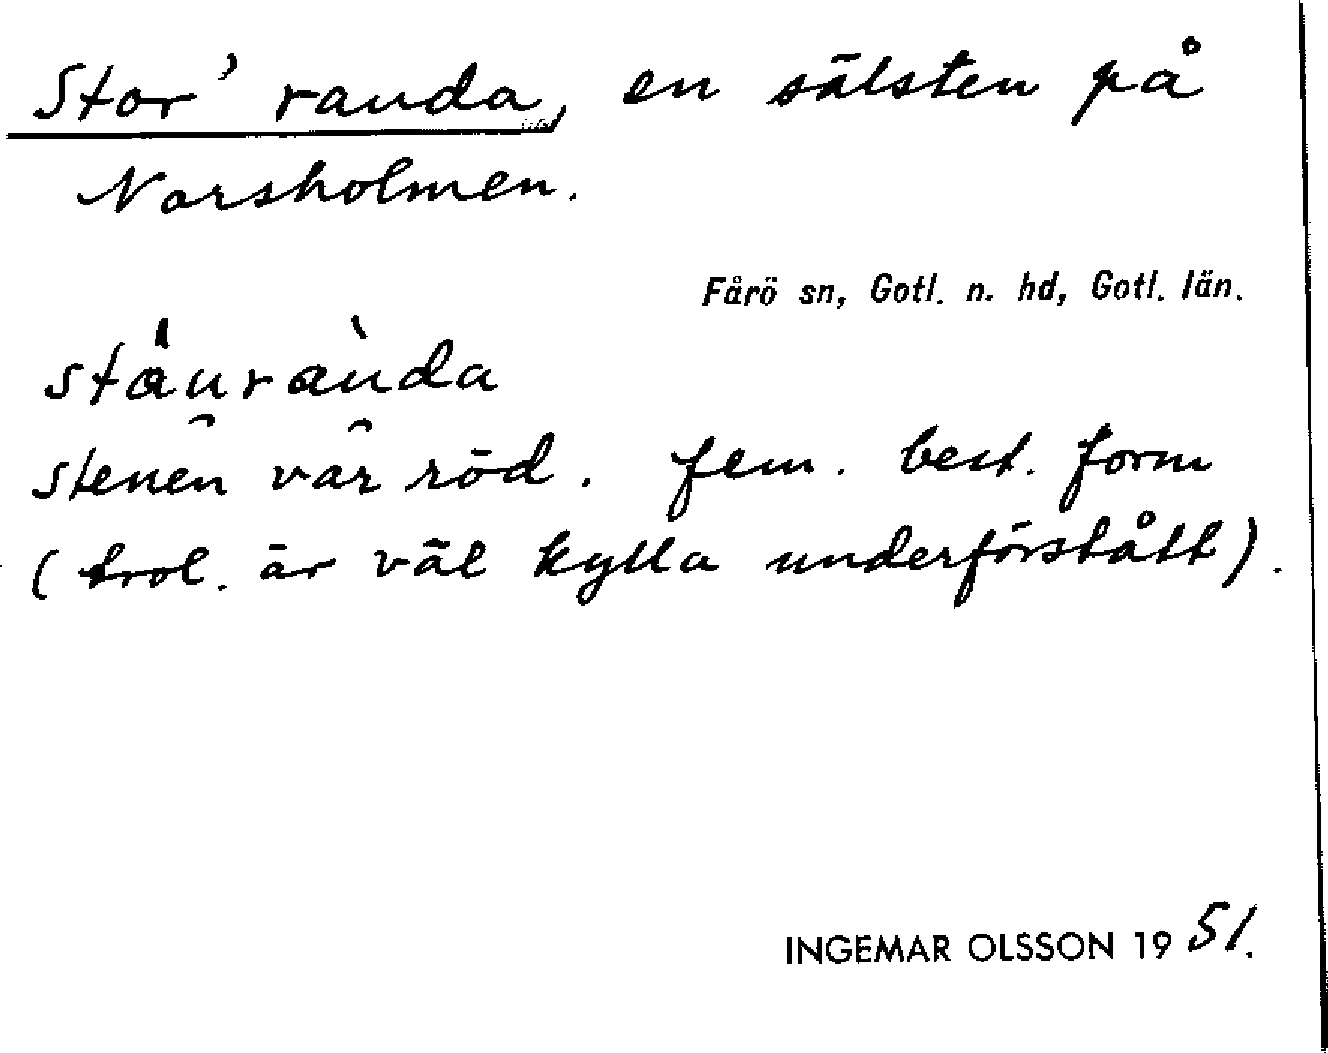 Stor' rauda, en sälsten på
Norsholmen.
Fårö sn, Gotl. n. hd, Gotl. län.
stäu̯ràu̯da
stenen var röd. fem. best. form
(trol. är väl kylla underförstått).
INGEMAR OLSSON 1951.